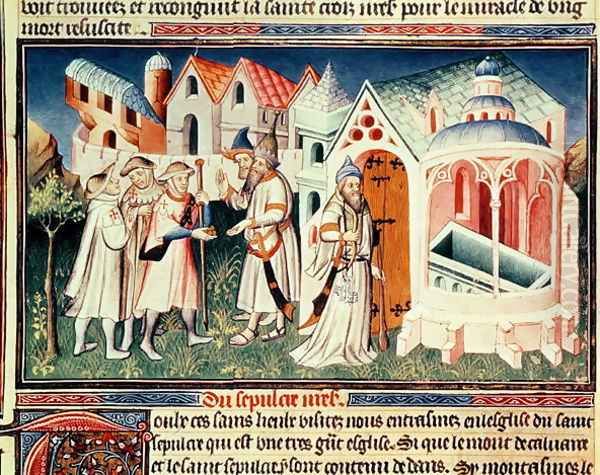 voit trouuees et recongnut la sainte croiz nres pour le miracle de vng
mort resuscite .
Du sepulcre nres
ces sains lieulx visitez nous entrasmez en leglise du saint
sepulcre qui est vne tres grāt esglise. Si que le mont de caluaire
et le saint sepulcre y sont contenu dedans. Sy montasmes le